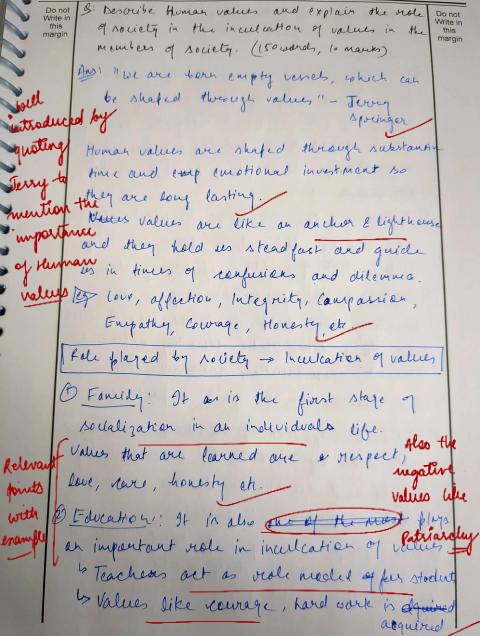 Do not
Write in
this
margin
Do not
Write in
this
margin
Q: Describe Human values and explain the role
of society in the inculcation of values in the
members of society. (150 words, 10 marks)
Ans: "We are born empty vessels, which can
be shaped through values" - Jerry
Springer
Well
introduced by
quoting
Jerry to
mention the
importance
of Human
values
Human values are shaped through substantin
time and emotional investment so
they are long lasting.
values are like an anchor & lighthouse
and they hold us steadfast and guide
us in times of confusions and dilemma.
eg Love, affection, Integrity, Compassion,
Empathy, Courage, Honesty, etc.
Role played by society → Inculcation of values
① Family: It is the first stage of
socialization in an individuals life.
Values that are learned are respect,
love, care, honesty etc.
Relevant
points
with
example
Also the
negative
values like
Patriarchy
② Education: It is also one of the most plays
an important role in inculcation of values
↳ Teachers act as role model of for student
↳ Values like courage, hard work is
acquired